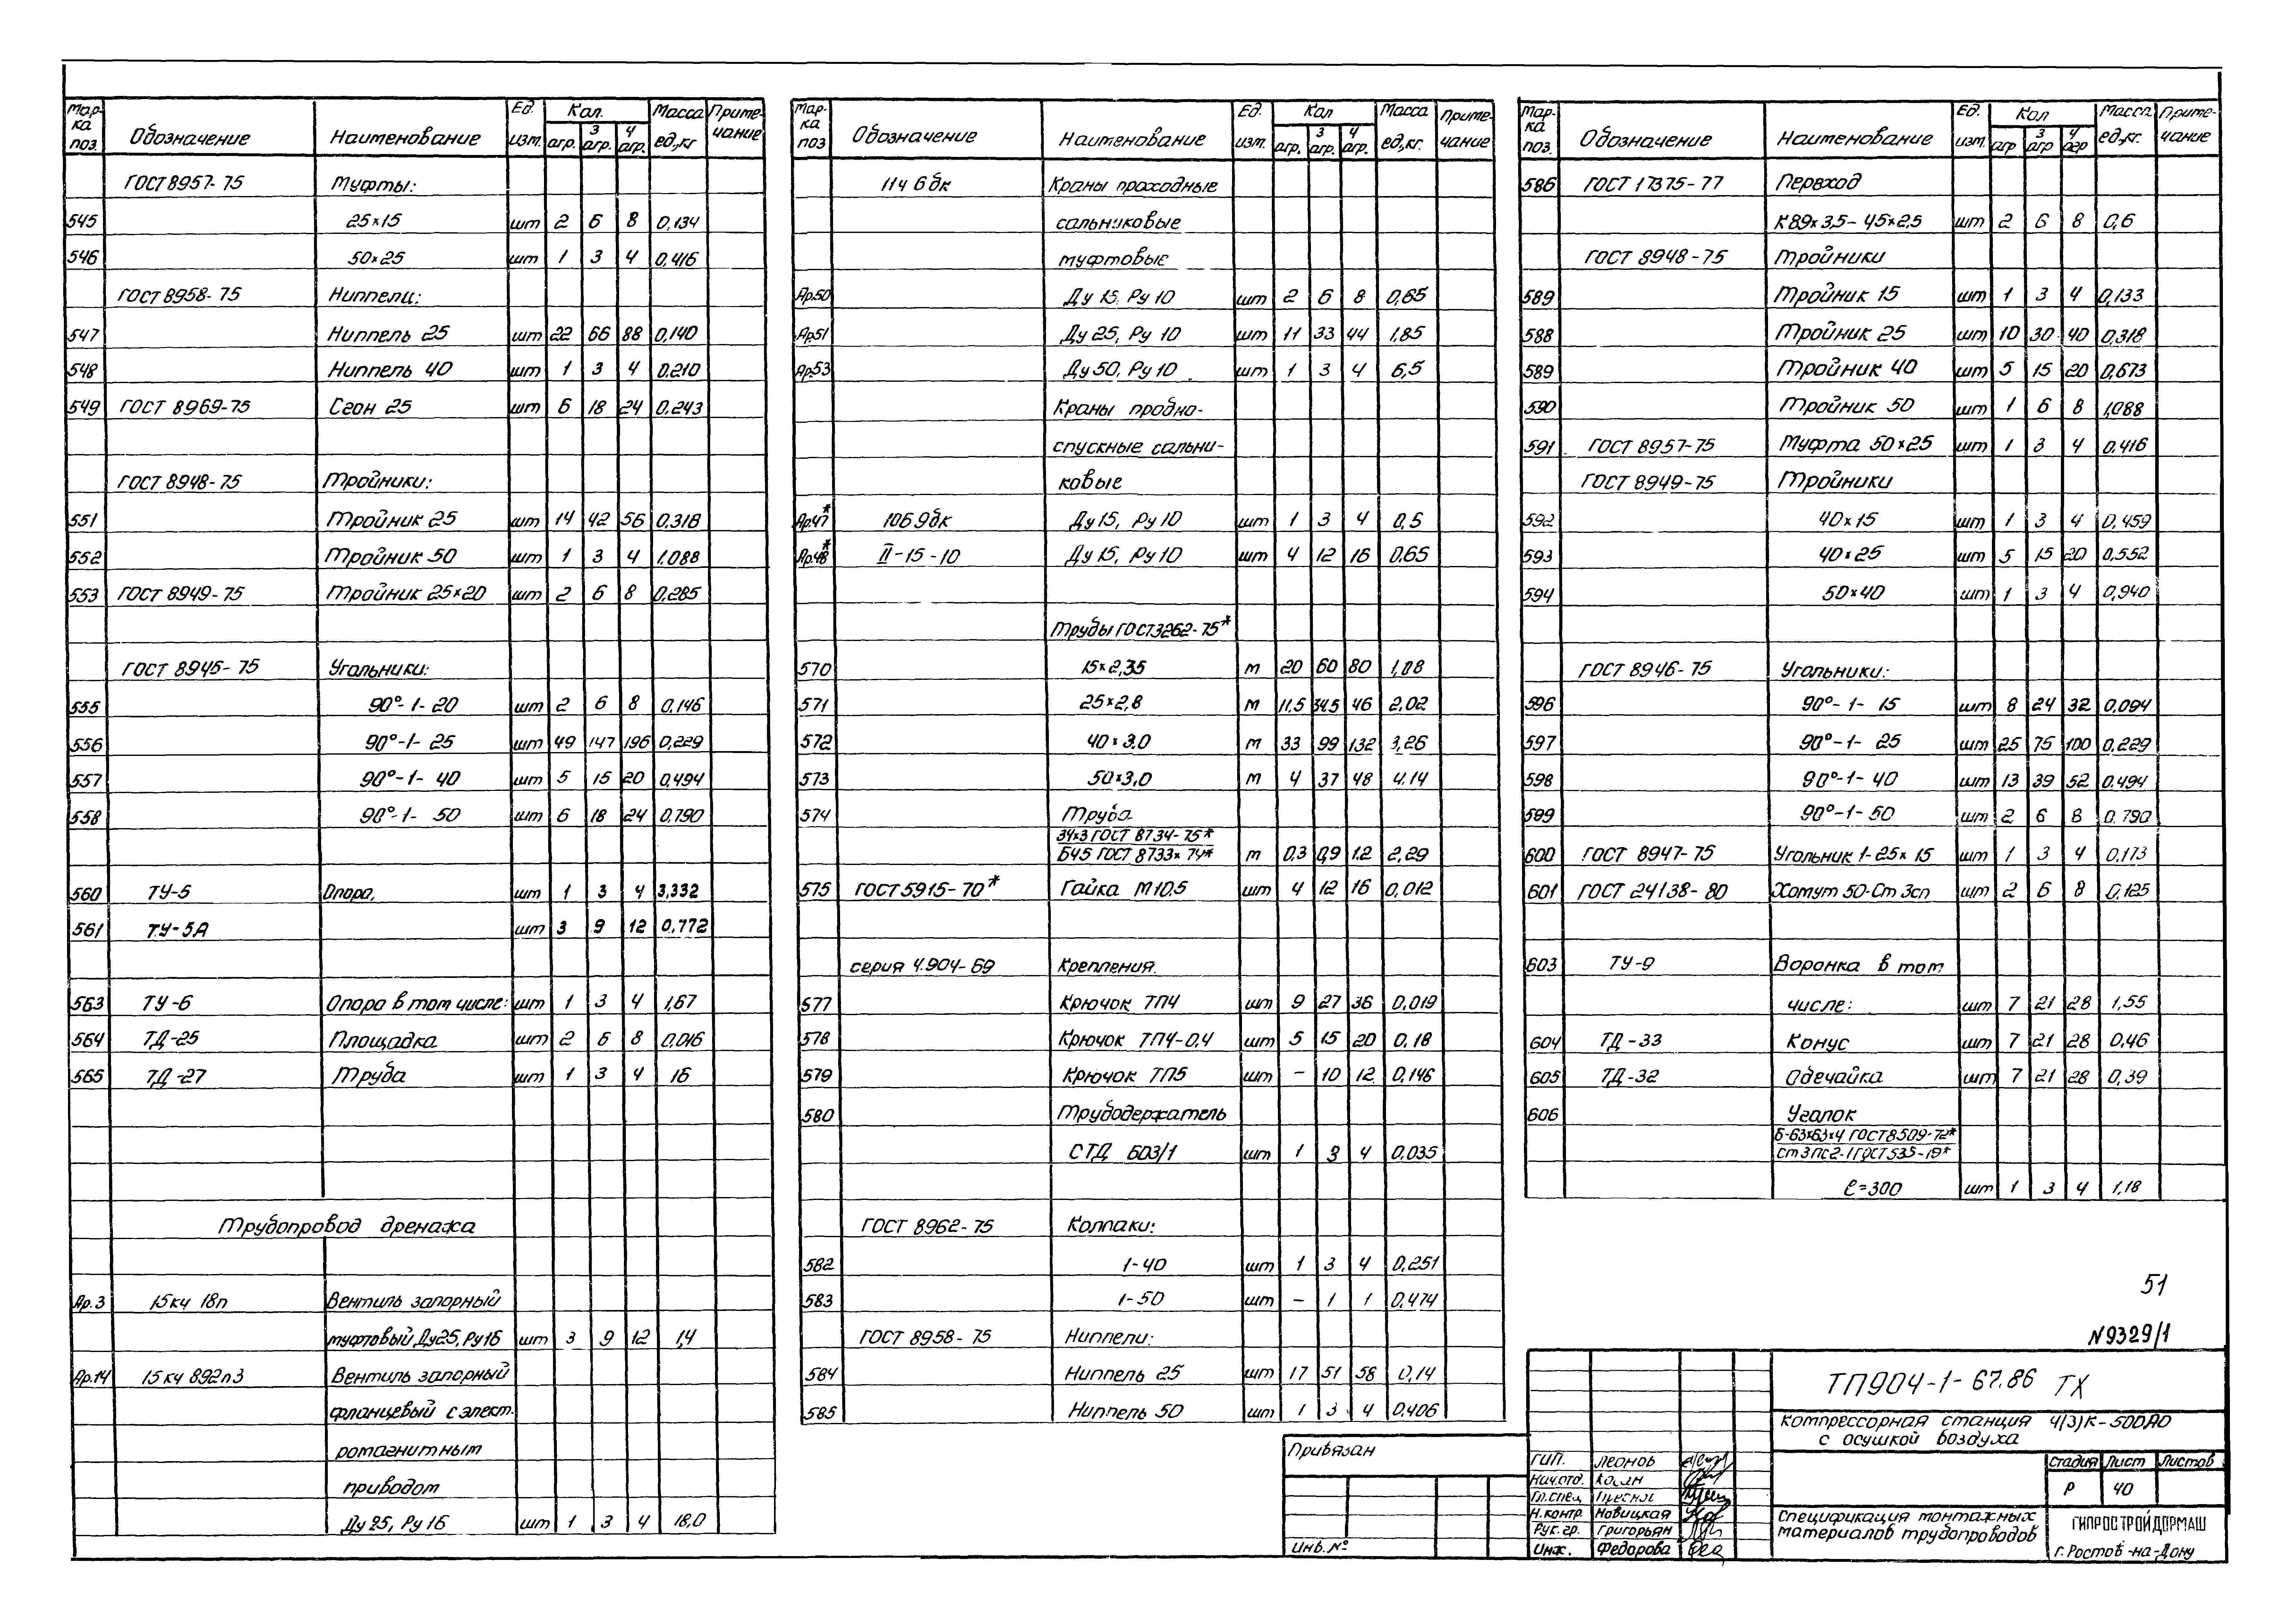 Марка поз. Обозначение Наименование Ед. изм. Кол. агр. 3 агр. 4 агр. Масса ед,кг Примечание
ГОСТ 8957-75 Муфты:
545 25×15 шт 2 6 8 0,134
546 50×25 шт 1 3 4 0,416
ГОСТ 8958-75 Ниппели:
547 Ниппель 25 шт 22 66 88 0,140
548 Ниппель 40 шт 1 3 4 0,210
549 ГОСТ 8969-75 Сгон 25 шт 6 18 24 0,243
ГОСТ 8948-75 Тройники:
551 Тройник 25 шт 14 42 56 0,318
552 Тройник 50 шт 1 3 4 1,088
553 ГОСТ 8949-75 Тройник 25×20 шт 2 6 8 0,285
ГОСТ 8945-75 Угольники:
555 90°-1-20 шт 2 6 8 0,146
556 90°-1-25 шт 49 147 196 0,229
557 90°-1-40 шт 5 15 20 0,494
558 90°-1-50 шт 6 18 24 0,790
560 ТУ-5 Опора, шт 1 3 4 3,332
561 ТУ-5А шт 3 9 12 0,772
563 ТУ-6 Опора в том числе: шт 1 3 4 1,67
564 ТД-25 Площадка шт 2 6 8 0,016
565 ТД-27 Труба шт 1 3 4 16
Трубопровод дренажа
Ар.3 15кч 18п Вентиль запорный
муфтовый Ду25, Ру16 шт 3 9 12 1,4
Ар.14 15кч 892п3 Вентиль запорный
фланцевый с элект-
ромагнитным
приводом
Ду 25, Ру 16 шт 1 3 4 18,0
Марка поз Обозначение Наименование Ед. изм. Кол агр. 3 агр. 4 агр. Масса ед,кг. Примечание
11ч 6бк Краны проходные
сальниковые
муфтовые
Ар.50 Ду 15, Ру 10 шт 2 6 8 0,65
Ар.51 Ду 25, Ру 10 шт 11 33 44 1,85
Ар.53 Ду 50, Ру 10 шт 1 3 4 6,5
Краны пробно-
спускные сальни-
ковые
Ар.47* 10Б9бк Ду 15, Ру 10 шт 1 3 4 0,5
Ар.48* II-15-10 Ду 15, Ру 10 шт 4 12 16 0,65
Трубы ГОСТ3262-75*
570 15×2,35 м 20 60 80 1,08
571 25×2,8 м 11,5 34,5 46 2,02
572 40×3,0 м 33 99 132 3,26
573 50×3,0 м 4 37 48 4,14
574 Труба
34×3 ГОСТ 8734-75*
Б45 ГОСТ 8733×74* м 0,3 0,9 1,2 2,29
575 ГОСТ 5915-70* Гайка М10.5 шт 4 12 16 0,012
серия 4.904-69 Крепления.
577 Крючок ТП4 шт 9 27 36 0,019
578 Крючок ТП4-0,4 шт 5 15 20 0,18
579 Крючок ТП5 шт - 10 12 0,146
580 Трубодержатель
СТД 603/1 шт 1 3 4 0,035
ГОСТ 8962-75 Колпаки:
582 1-40 шт 1 3 4 0,251
583 1-50 шт - 1 1 0,474
ГОСТ 8958-75 Ниппели:
584 Ниппель 25 шт 17 51 58 0,14
585 Ниппель 50 шт 1 3 4 0,406
Марка поз. Обозначение Наименование Ед. изм. Кол агр 3 агр 4 агр Масса ед,кг. Примечание
586 ГОСТ 17375-77 Переход
К89×3,5-45×2,5 шт 2 6 8 0,6
ГОСТ 8948-75 Тройники
589 Тройник 15 шт 1 3 4 0,133
588 Тройник 25 шт 10 30 40 0,318
589 Тройник 40 шт 5 15 20 0,673
590 Тройник 50 шт 1 6 8 1,088
591 ГОСТ 8957-75 Муфта 50×25 шт 1 3 4 0,416
ГОСТ 8949-75 Тройники
592 40×15 шт 1 3 4 0,459
593 40×25 шт 5 15 20 0,552
594 50×40 шт 1 3 4 0,940
ГОСТ 8946-75 Угольники:
596 90°-1-15 шт 8 24 32 0,094
597 90°-1-25 шт 25 75 100 0,229
598 90°-1-40 шт 13 39 52 0,494
599 90°-1-50 шт 2 6 8 0,790
600 ГОСТ 8947-75 Угольник 1-25×15 шт 1 3 4 0,173
601 ГОСТ 24138-80 Хомут 50-Ст 3сп шт 2 6 8 0,125
603 ТУ-9 Воронка в том
числе: шт 7 21 28 1,55
604 ТД-33 Конус шт 7 21 28 0,46
605 ТД-32 Обечайка шт 7 21 28 0,39
606 Уголок
Б-63×63×4 ГОСТ8509-72*
Ст3пс2-1 ГОСТ535-79*
ℓ=300 шт 1 3 4 1,18
51
N9329/1
ТП904-1-67.86 ТХ
Компрессорная станция 4(3)К-500АО
с осушкой воздуха
Стадия Лист Листов
Р 40
Спецификация монтажных
материалов трубопроводов
ГИПРОСТРОЙДОРМАШ
г. Ростов-на-Дону
Привязан
Инв. №
ГИП. Леонов
Нач.отд.
Гл.спец
Н.контр Новицкая
Рук. гр. Григорьян
Инж. Федорова